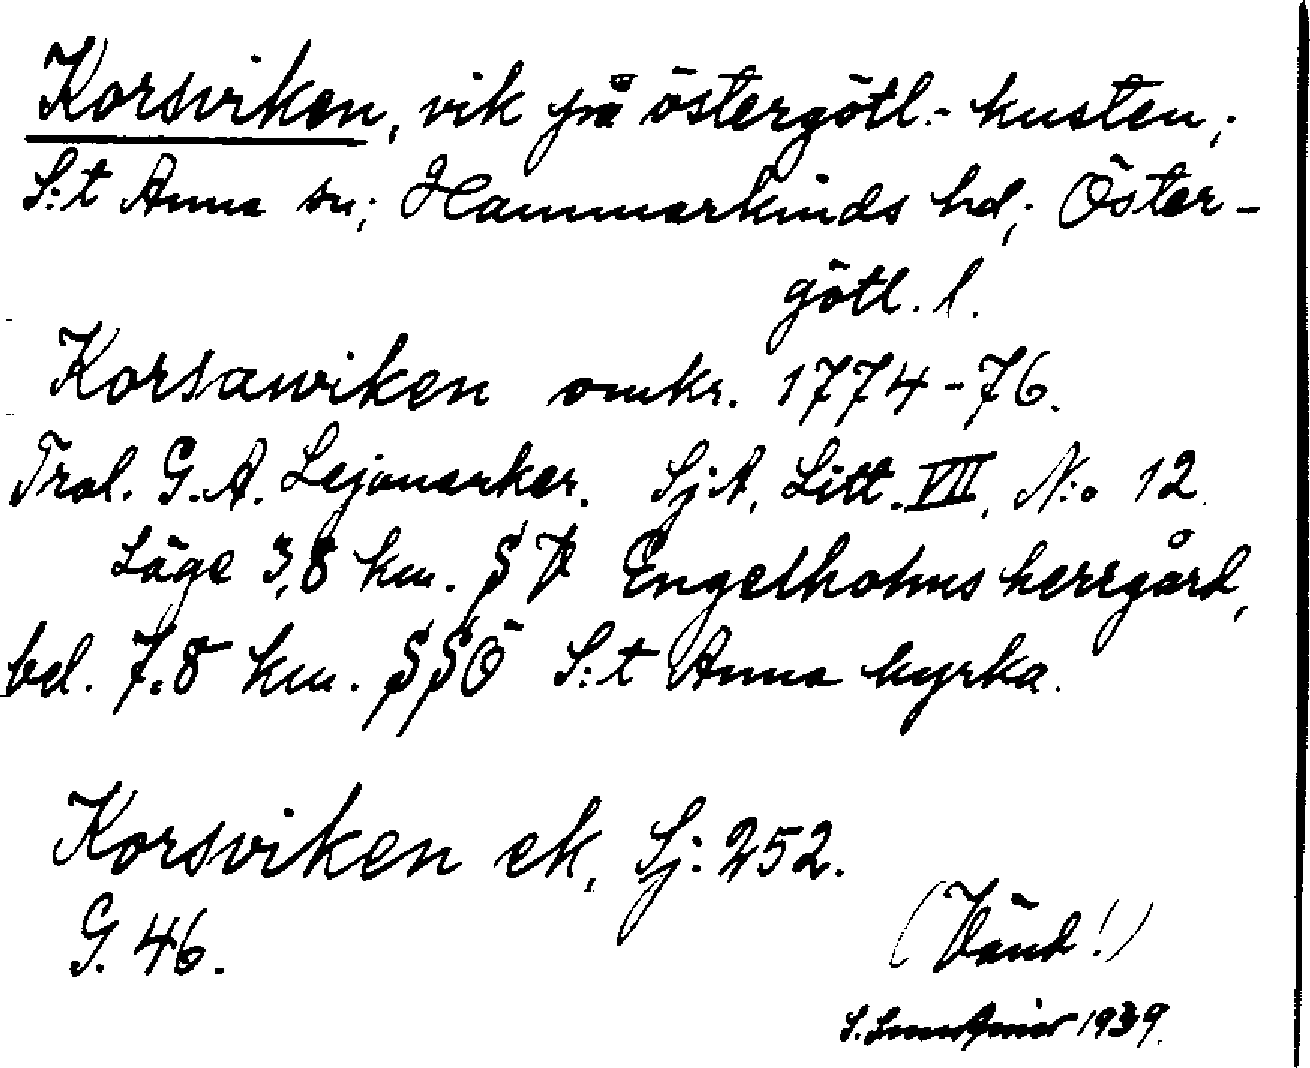 Korsviken, vik på östergötl.-kusten;
S:t Anna sn; Hammarkinds hd; Öster-
götl. l.
Korsawiken omkr. 1774-76.
Trol. G.A. Lejonanker. SjA, Litt. VII, N:o 12.
Läge 3,8 km. SV Engelholms herrgård,
bel. 7.8 km. SSÖ S:t Anna kyrka.
Korsviken ek, Sj: 252.
G. 46.
(Vänd!)
S. 1939.